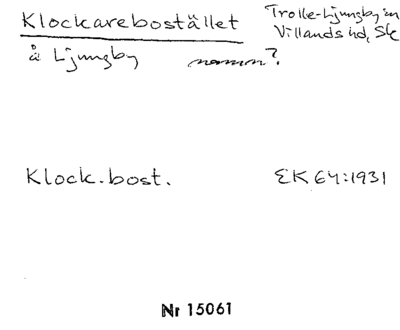 Klockarebostället
Trolle-Ljungby sn
Villands hd, Sk
å Ljungby namn?
Klock.bost.
EK 64:1931
Nr 15061